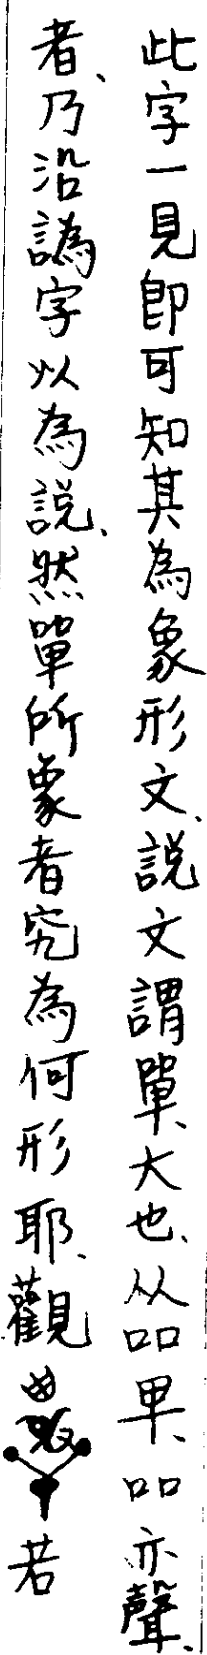 此字一見即可知其為象形文、説文謂單、大也、从吅甲、吅亦聲、
者、乃沿譌字以為説、然單所象者究為何形耶、觀若